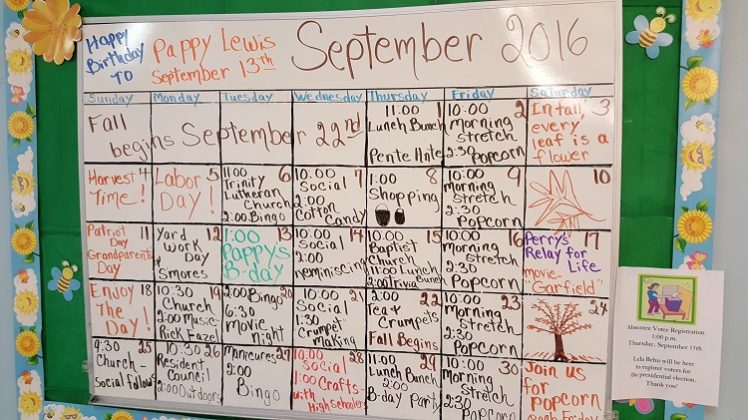 Happy
Birthday
TO
Pappy Lewis
September 13th
September 2016
Sunday Monday Tuesday Wednesday Thursday Friday Saturday
Fall
begins September 22nd
1
11:00
Lunch Bunch
Pente Ante
2
10:00
Morning
Stretch
2:30
Popcorn
3
In fall,
every
leaf is a
flower
4
Harvest
Time!
5
Labor
Day!
6
11:00
Trinity
Lutheran
Church
2:00 Bingo
7
10:00
Social
2:00
Cotton
Candy
8
1:00
Shopping
9
10:00
Morning
Stretch
2:30
Popcorn
10
11
Patriot
Day
Grandparents
Day
12
Yard
Work
Day
Smores
13
1:00
Pappy's
B-day
14
10:00
Social
2:00
reminiscing
15
10:00
Baptist
Church
11:00 Lunch
Bunch
2:00 Trivia
16
10:00
Morning
Stretch
2:30
Popcorn
17
Perry's
Relay for
Life
movie-
"Garfield"
18
Enjoy
The
Day!
19
10:30
Church
2:00 Music-
Rick Fazel
20
2:00 Bingo
6:30
Movie
night
21
10:00
Social
1:30
Crumpet
Making
22
2:00
Tea &
Crumpets
Fall Begins
23
10:00
Morning
Stretch
2:30
Popcorn
24
25
9:30
Church-
Social follows
26
10:30
Resident
Council
2:00 Outdoors
27
Manicures
2:00
Bingo
28
10:00
Social
1:00 Crafts-
with
High Schoolers
29
11:00
Lunch Bunch
2:00
B-day Party
30
10:00
Morning
Stretch
2:30
Popcorn
Join us
for
popcorn
each Friday
Absentee Voter Registration
1:00 p.m.
Thursday, September 15th
will be here
to register voters for
the presidential election.
Thank you!